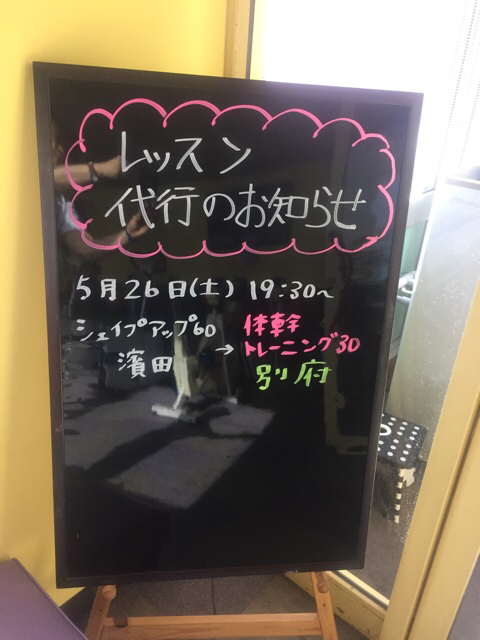 レッスン
代行のお知らせ
5月26日(土) 19:30〜
シェイプアップ60
濱田
→
体幹
トレーニング30
別府